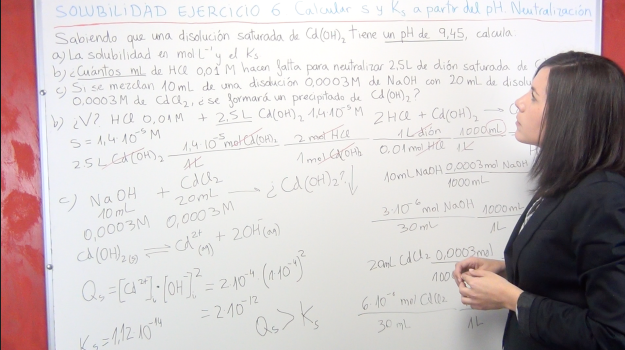 SOLUBILIDAD EJERCICIO 6 Calcular s y Ks a partir del pH Neutralización
Sabiendo que una disolución saturada de Cd(OH)2 tiene un pH de 9,45, calcula
a) La solubilidad en mol L⁻¹ y el Ks
b) ¿Cuántos mL de HCl 0,01 M hacen falta para neutralizar 2,5L de dión saturada de
c) Si se mezclan 10 mL de una disolución 0,0003M de NaOH con 20 mL de
0,0003M de CdCl2, ¿se formará un precipitado de Cd(OH)2?
b) ¿V? HCl 0,01M + 2,5L Cd(OH)2 1,4·10⁻⁵M 2HCl + Cd(OH)2 →
S = 1,4·10⁻⁵M
2,5L Cd(OH)2 1,4·10⁻⁵ mol Cd(OH)2 / 1L 2 mol HCl / 1 mol Cd(OH)2 1L dión / 0,01 mol HCl 1000mL / 1L
c) NaOH + CdCl2 → ¿Cd(OH)2? ↓
10mL 20mL
0,0003M 0,0003M
10mL NaOH 0,0003mol NaOH / 1000mL
Cd(OH)2(s) ⇌ Cd²⁺(aq) + 2OH⁻(aq)
3·10⁻⁶ mol NaOH / 30 mL 1000mL / 1L
Qs = [Cd²⁺]·[OH⁻]² = 2·10⁻⁴ (1·10⁻⁴)²
= 2·10⁻¹²
20mL CdCl2 0,0003mol
Ks = 1,12·10⁻¹⁴
Qs > Ks
6·10⁻⁶ mol CdCl2 / 30 mL 1L